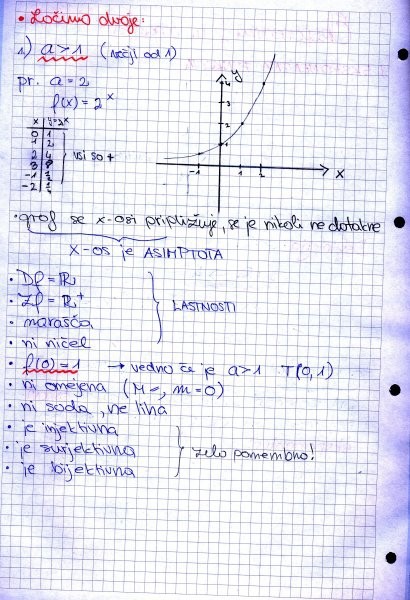 • Ločimo dvoje:
1) a > 1 (večji od 1)
pr. a = 2
f(x) = 2^x
x | y=2^x
0 | 1
1 | 2
2 | 4
3 | 8
-1 | 1/2
-2 | 1/4
vsi so +
y
4
3
2
1
-1 1 2 x
• graf se x-osi približuje, se je nikoli ne dotakne
x-os je ASIMPTOTA
• Df = ℝ
• Zf = ℝ⁺
LASTNOSTI
• narašča
• ni ničel
• f(0) = 1 → vedno če je a > 1 T(0,1)
• ni omejena (M=, m=0)
• ni soda, ne liha
• je injektivna
• je surjektivna zelo pomembno!
• je bijektivna